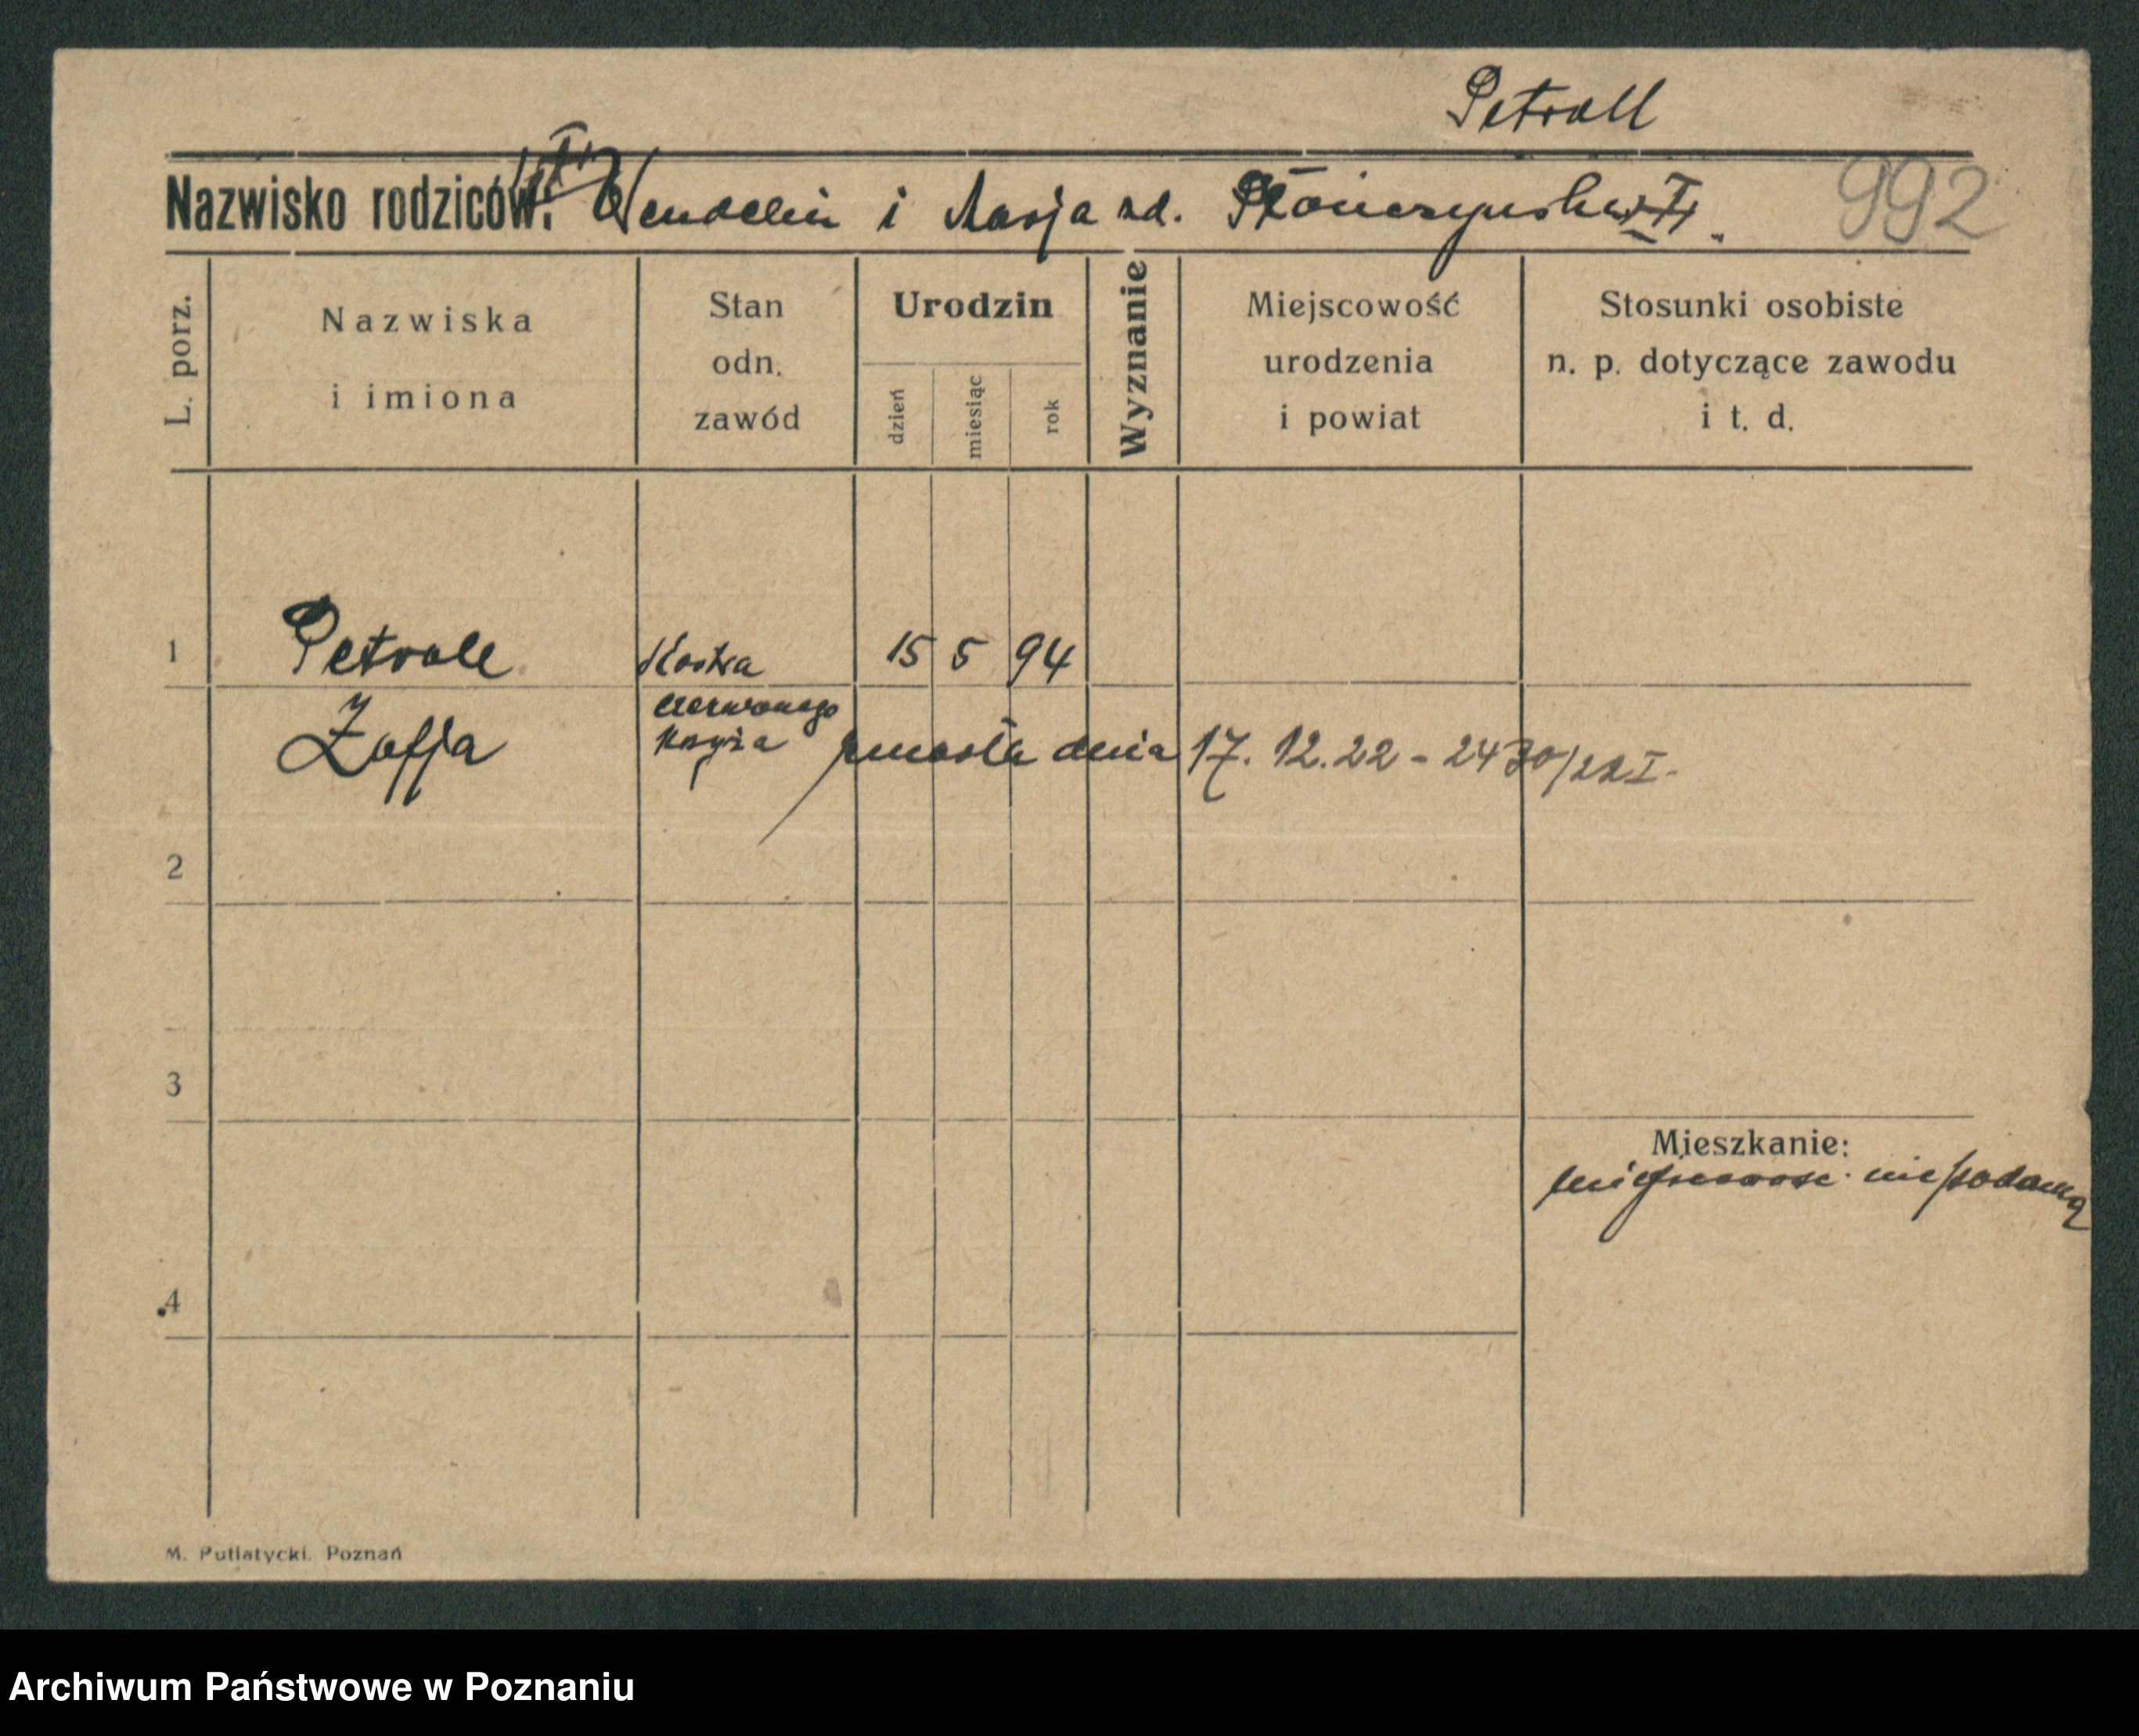 Petroll
Nazwisko rodziców: Wendelin i Marja zd. 992
L. porz.
Nazwiska
i imiona
Stan
odn.
zawód
Urodzin
dzień
miesiąc
rok
Wyznanie
Miejscowość
urodzenia
i powiat
Stosunki osobiste
n. p. dotyczące zawodu
i t. d.
1 Petroll Siostra 15 5 94
Zofja czerwonego
krzyża zmarła dnia 17. 12. 22 - 2430/22 I.
2
3
Mieszkanie:
miejscowość nie podana
4
M. Putiatycki. Poznań
Archiwum Państwowe w Poznaniu